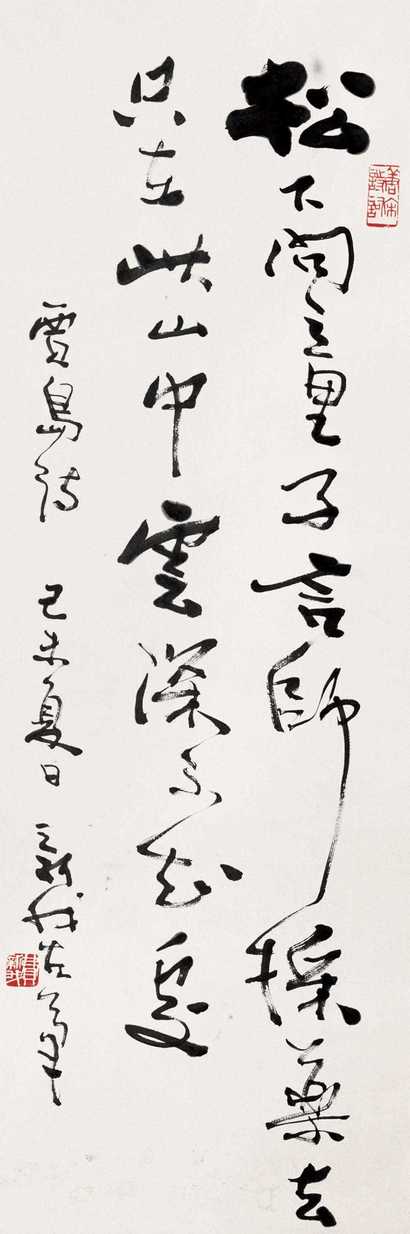 松下问童子言師採藥去
只在此山中雲深不知處
賈島诗 己未夏日 新我左筆